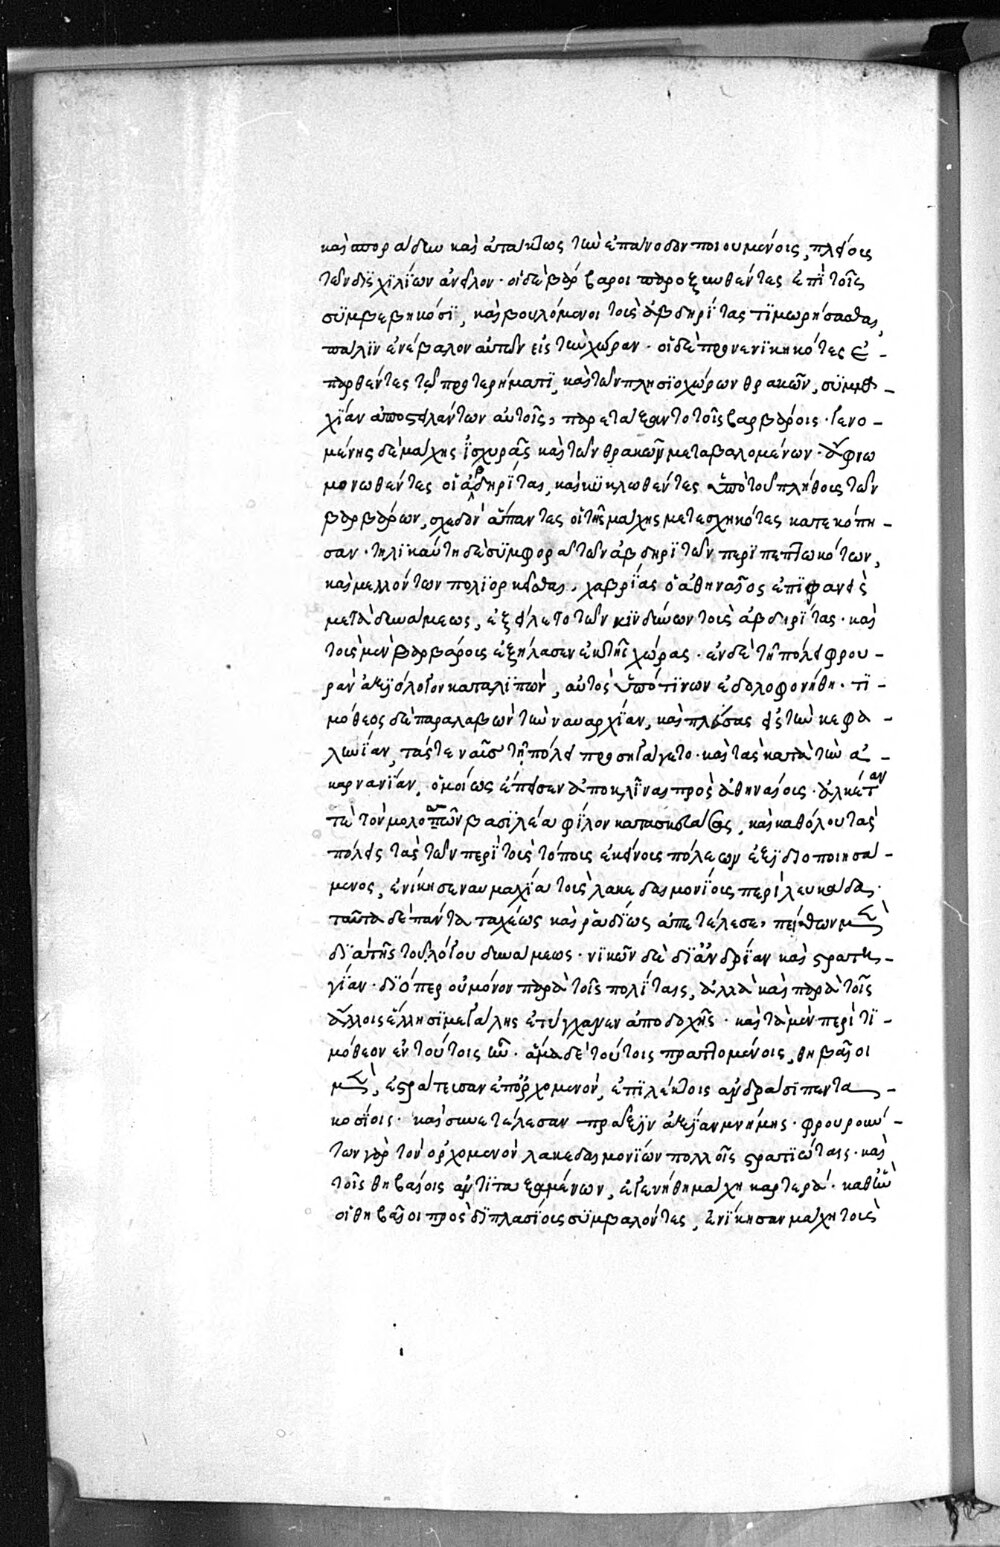 καὶ σποράδην καὶ ἀτάκτως τὴν ἐπάνοδον ποιουμένοις, πλείους
τῶν δισχιλίων ἀνεῖλον· οἱ δὲ βάρβαροι παροξυνθέντες ἐπὶ τοῖς
συμβεβηκόσι, καὶ βουλόμενοι τοὺς ἀβδηρίτας τιμωρήσασθαι,
πάλιν ἐνέβαλον αὐτῶν εἰς τὴν χώραν· οἱ δὲ προνενικηκότες ἐ-
παρθέντες τῷ προτερήματι, καὶ τῶν πλησιοχώρων θρακῶν, συμμα-
χίαν ἀποστειλάντων αὐτοῖς, παρετάξαντο τοῖς βαρβάροις· γενο-
μένης δὲ μάχης ἰσχυρᾶς καὶ τῶν θρακῶν μεταβαλομένων· ἄφνω
μονωθέντες οἱ ἀβδηρῖται, καὶ κυκλωθέντες ὑπὸ τοῦ πλήθους τῶν
βαρβάρων, σχεδὸν ἅπαντες οἱ τῆς μάχης μετεσχηκότες κατεκόπη-
σαν· τηλικαύτῃ δὲ συμφορᾷ τῶν ἀβδηριτῶν περιπεπτωκότων,
καὶ μελλόντων πολιορκεῖσθαι, χαβρίας ὁ ἀθηναῖος ἐπιφανεὶς
μετὰ δυνάμεως, ἐξείλετο τῶν κινδύνων τοὺς ἀβδηρίτας· καὶ
τοὺς μὲν βαρβάρους ἐξήλασεν ἐκ τῆς χώρας· ἐν δὲ τῇ πόλει φρου-
ρὰν ἀξιόλογον καταλιπὼν, αὐτὸς ὑπό τινων ἐδολοφονήθη· τι-
μόθεος δὲ παραλαβὼν τὴν ναυαρχίαν, καὶ πλεύσας εἰς τὴν κεφα-
λωνίαν, τάς τε ἐν αὐτῇ πόλεις προσηγάγετο· καὶ τὰς κατὰ τὴν ἀ-
καρνανίαν, ὁμοίως ἔπεισεν ἀποκλῖναι πρὸς ἀθηναίους· ἀλκέταν
τε τὸν μολοττῶν βασιλέα φίλον κατασκευάσας, καὶ καθόλου τὰς
πόλεις τὰς τῶν περὶ τοὺς τόπους ἐκείνους πόλεων ἐξιδιοποιησά-
μενος, ἐνίκησε ναυμαχίᾳ τοὺς λακεδαιμονίους περὶ λευκάδα·
ταῦτα δὲ πάντα ταχέως καὶ ῥᾳδίως ἀπετέλεσε, πείθων μὲν
διὰ τῆς τοῦ λόγου δυνάμεως· νικῶν δὲ δι᾽ ἀνδρείαν καὶ στρατη-
γίαν· διόπερ οὐ μόνον παρὰ τοῖς πολίταις, ἀλλὰ καὶ παρὰ τοῖς
ἄλλοις ἕλλησι μεγάλης ἐτύγχανεν ἀποδοχῆς· καὶ τὰ μὲν περὶ τι-
μόθεον ἐν τούτοις ἦν· ἅμα δὲ τούτοις πραττομένοις, θηβαῖοι
μὲν, ἐστράτευσαν ἐπ᾽ ὀρχομενὸν, ἐπιλέκτοις ἀνδράσι πεντα-
κοσίοις· καὶ συνετέλεσαν πρᾶξιν ἀξίαν μνήμης· φρουρούν-
των γὰρ τὸν ὀρχομενὸν λακεδαιμονίων πολλοῖς στρατιώταις· καὶ
τοῖς θηβαίοις ἀντιταξαμένων, ἐγενήθη μάχη καρτερά· καθ᾽ ἣν
οἱ θηβαῖοι πρὸς διπλασίους συμβαλόντες, ἐνίκησαν μάχῃ τοὺς